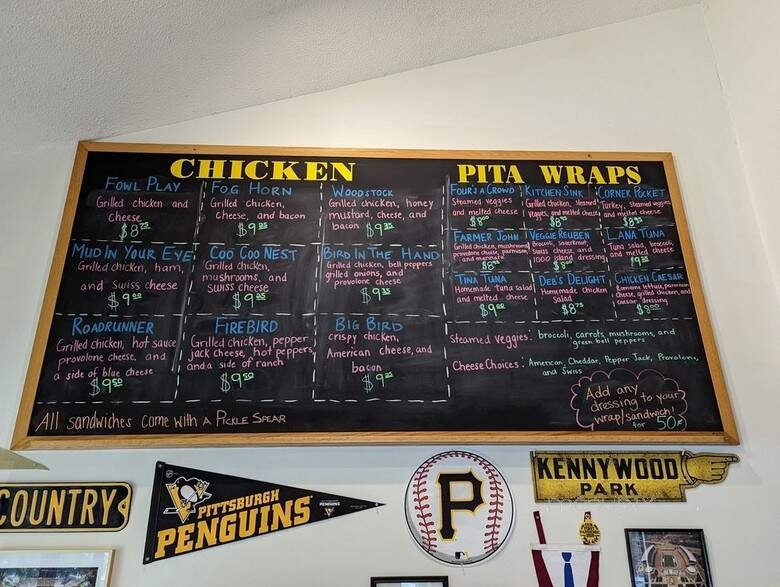 CHICKEN
FOWL PLAY
Grilled chicken and
cheese
FOG HORN
Grilled chicken,
cheese, and bacon
WOODSTOCK
Grilled chicken, honey
mustard, cheese, and
bacon
MUD IN YOUR EYE
Grilled chicken, ham,
and swiss cheese
COO COO NEST
Grilled chicken,
mushrooms, and
swiss cheese
BIRD IN THE HAND
Grilled chicken, bell peppers
grilled onions, and
provolone cheese
ROADRUNNER
Grilled chicken, hot sauce
provolone cheese, and
a side of blue cheese
$9.50
FIREBIRD
Grilled chicken, pepper
jack cheese, hot peppers,
and a side of ranch
$9.50
BIG BIRD
crispy chicken,
American cheese, and
bacon
All sandwiches come with a PICKLE SPEAR
PITA WRAPS
FOUR'S A CROWD
Steamed veggies
and melted cheese
KITCHEN SINK
Grilled chicken, steamed
veggies, and melted cheese
CORNER POCKET
Turkey, steamed veggies
and melted cheese
FARMER JOHN
Grilled chicken, mushrooms
provolone cheese, parmesan,
and marinara
VEGGIE REUBEN
broccoli, sauerkraut,
swiss cheese, and
1000 island dressing
LANA TUNA
Tuna salad, broccoli,
and melted cheese
TINA TUNA
Homemade tuna salad
and melted cheese
DEB'S DELIGHT
Homemade chicken
Salad
CHICKEN CAESAR
Romaine lettuce, parmesan
cheese, grilled chicken, and
caesar dressing
Steamed Veggies: broccoli, carrots, mushrooms, and
green bell peppers
Cheese Choices: American, Cheddar, Pepper Jack, Provolone,
and Swiss
Add any
dressing to your
wrap/sandwich!
for 50¢
COUNTRY
PITTSBURGH
PENGUINS
P
KENNYWOOD
PARK